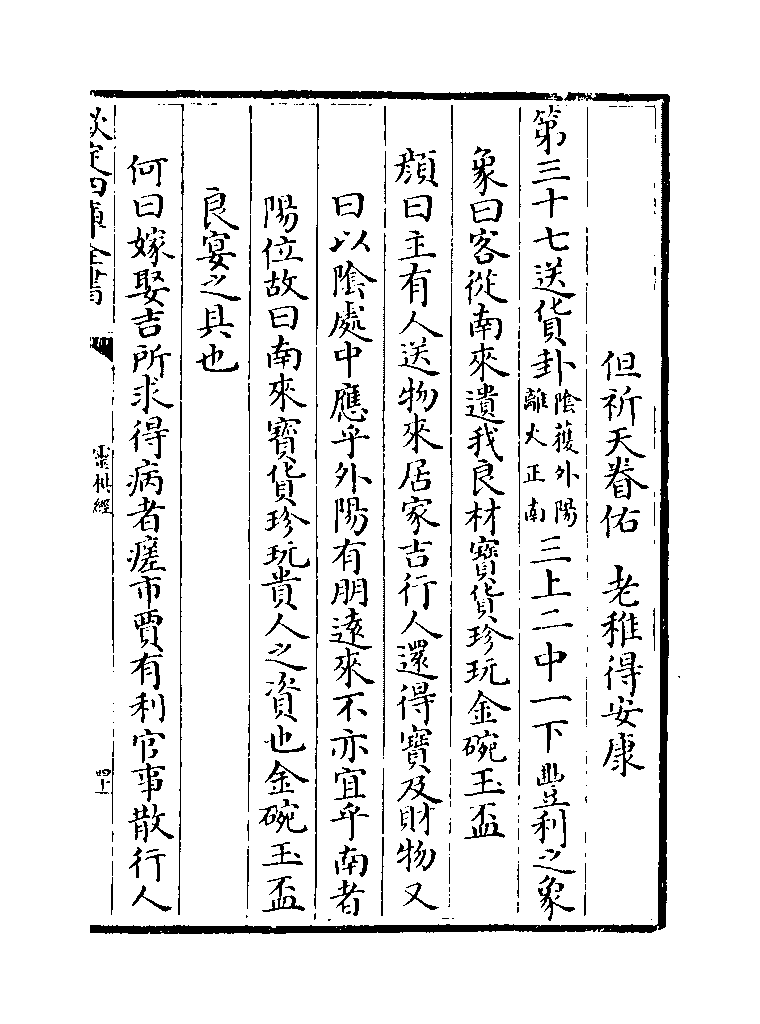 但祈天眷佑　老稚得安康
第三十七送貨卦陰獲外陽離火正南三上二中一下豐利之象
象曰客從南來遺我良材寶貨珍玩金碗玉盃
顔曰主有人送物來居家吉行人還得寶及財物又
曰以陰處中應乎外陽有朋逺來不亦宜乎南者
陽位故曰南來寶貨珍玩貴人之資也金碗玉盃
良宴之具也
何曰嫁娶吉所求得病者瘥市賈有利官事散行人
欽定四庫全書
靈棋經
四十一